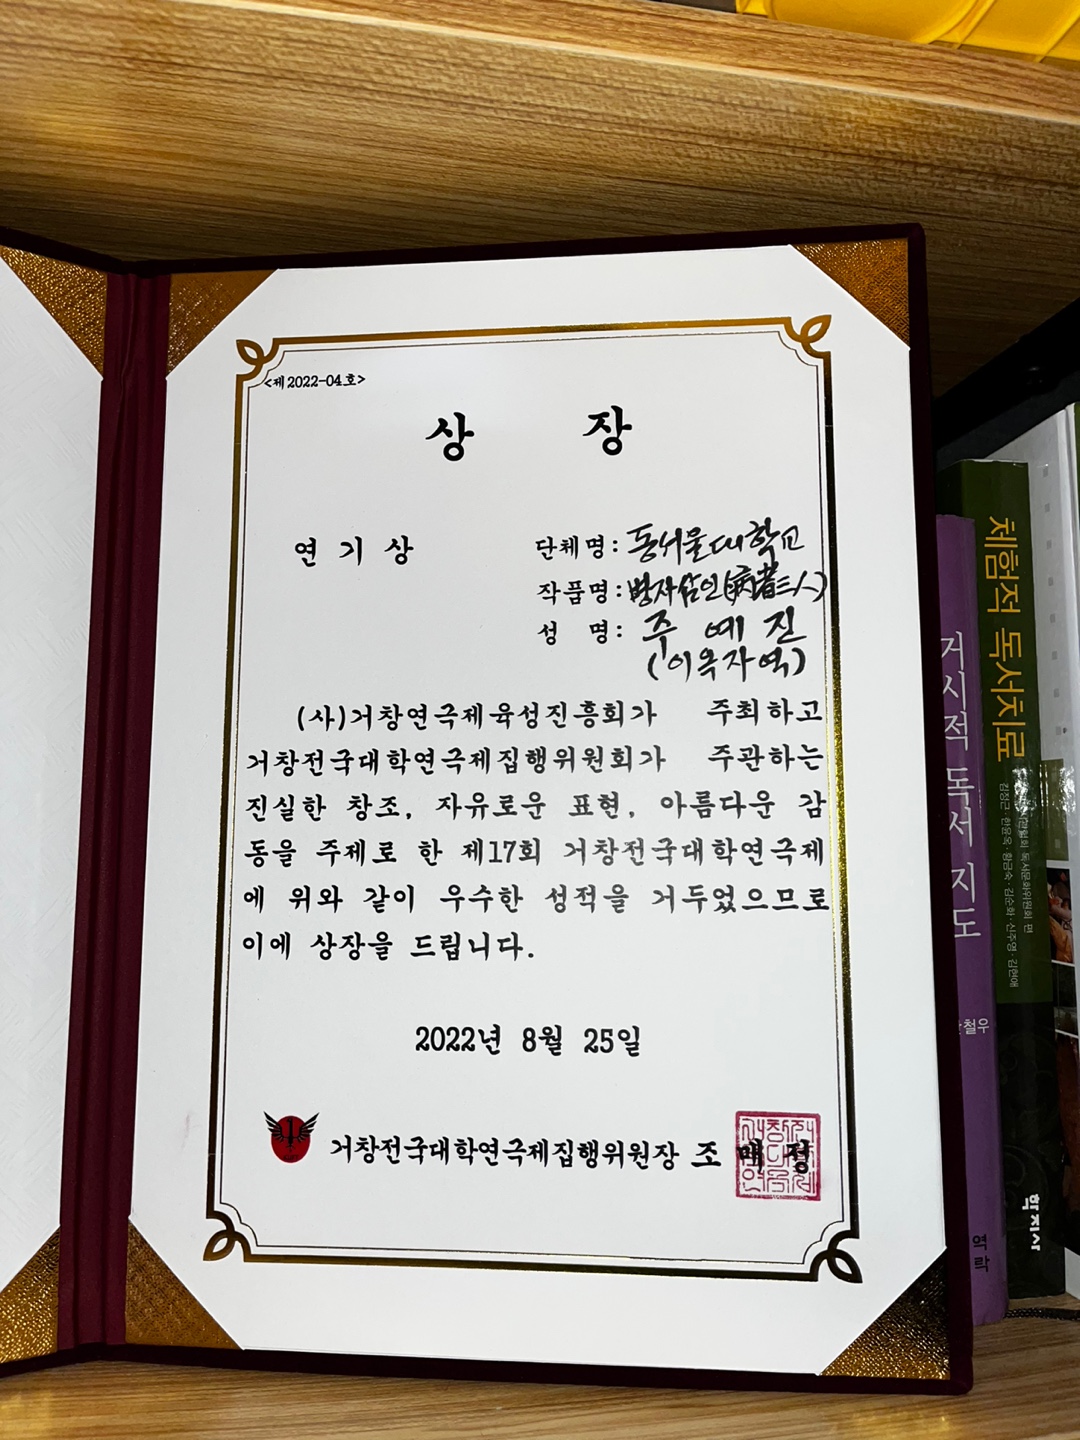 <제2022-04호>
상 장
연 기 상
단체명: 동서울대학교
작품명: 병자삼인(病者三人)
성 명: 주 예 진
(이옥자 역)
(사)거창연극제육성진흥회가 주최하고
거창전국대학연극제집행위원회가 주관하는
진실한 창조, 자유로운 표현, 아름다운 감
동을 주제로 한 제17회 거창전국대학연극제
에 위와 같이 우수한 성적을 거두었으므로
이에 상장을 드립니다.
2022년 8월 25일
거창전국대학연극제집행위원장 조 매 정
거시적 독서 지도
철우
역락
체험적 독서치료
독서문화위원회 편
김정근·한윤옥·황금숙·김순화·신주영·김현애
학지사